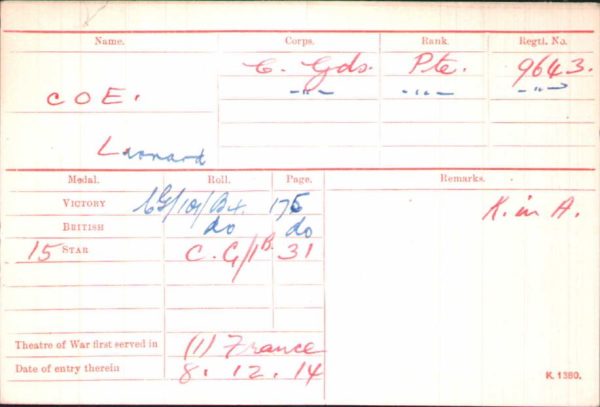 Name. Corps. Rank. Regtl. No.
C. Gds. Pte. 9643.
COE. -"- -"- -"-
Leonard
Medal. Roll. Page. Remarks.
VICTORY CG/101/B4. 175 K. in A.
BRITISH do do
15 STAR C.G/1B. 31
Theatre of War first served in (1) France
Date of entry therein 8.12.14
K. 1380.